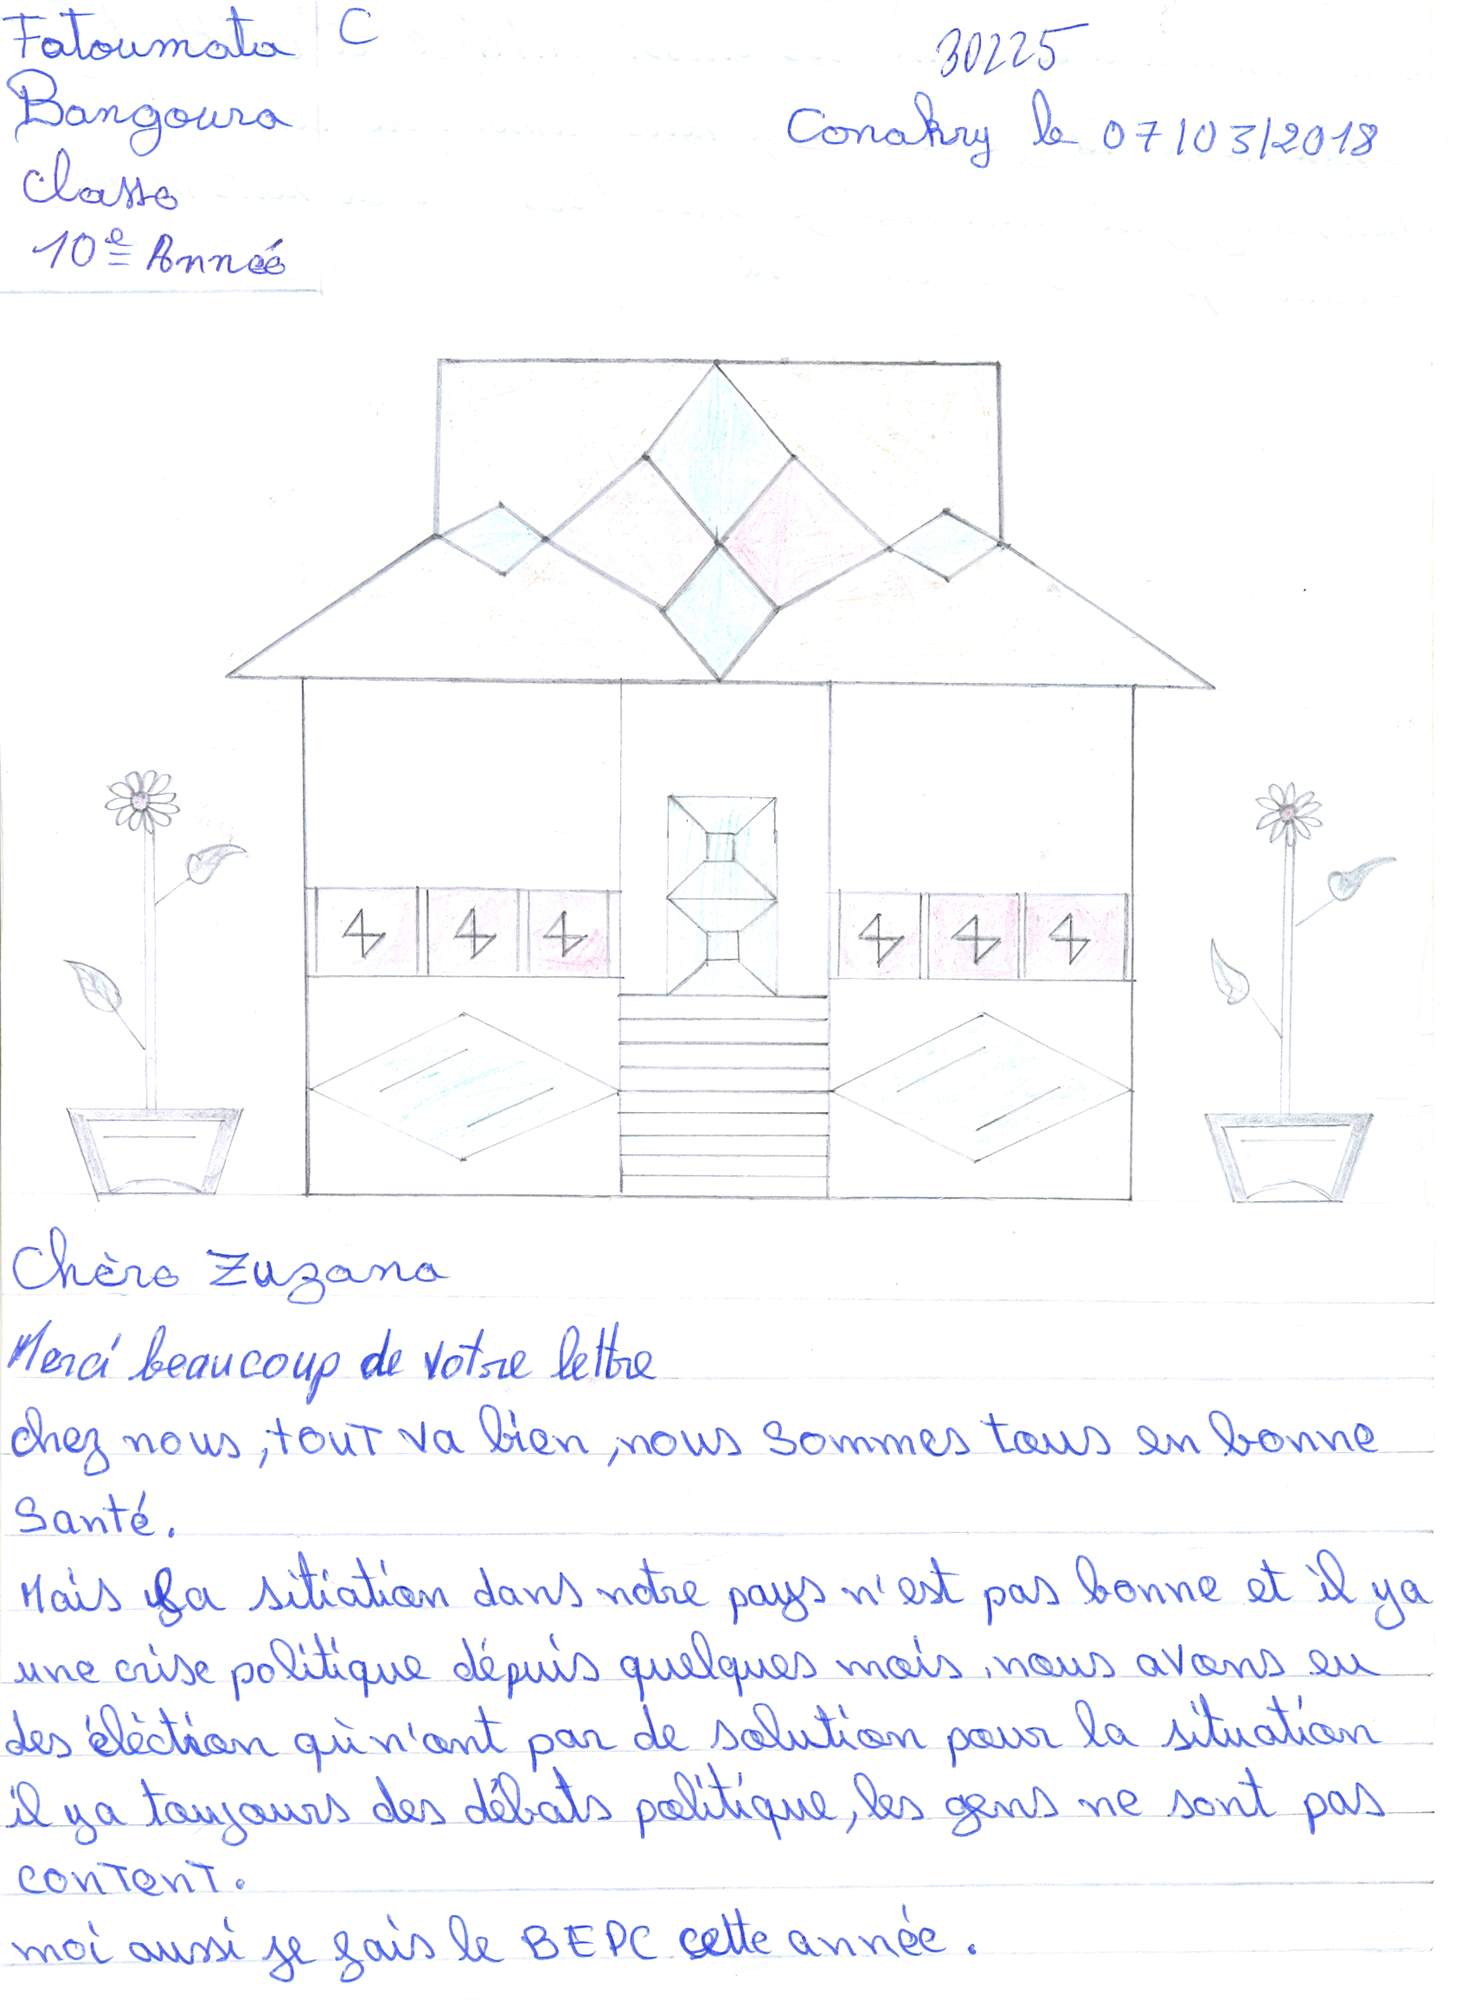 Fatoumata C
Bangoura
Classe
10e Année
30225
Conakry le 07/03/2018
Chère Zuzana
Merci beaucoup de votre lettre
chez nous, tout va bien, nous sommes tous en bonne
santé.
Mais la sitiation dans notre pays n'est pas bonne et il ya
une crise politique dépuis quelques mois, nous avons eu
des éléction qui n'ont par de solution pour la situation
il ya toujours des débats politique, les gens ne sont pas
content.
moi aussi je fais le BEPC cette année.